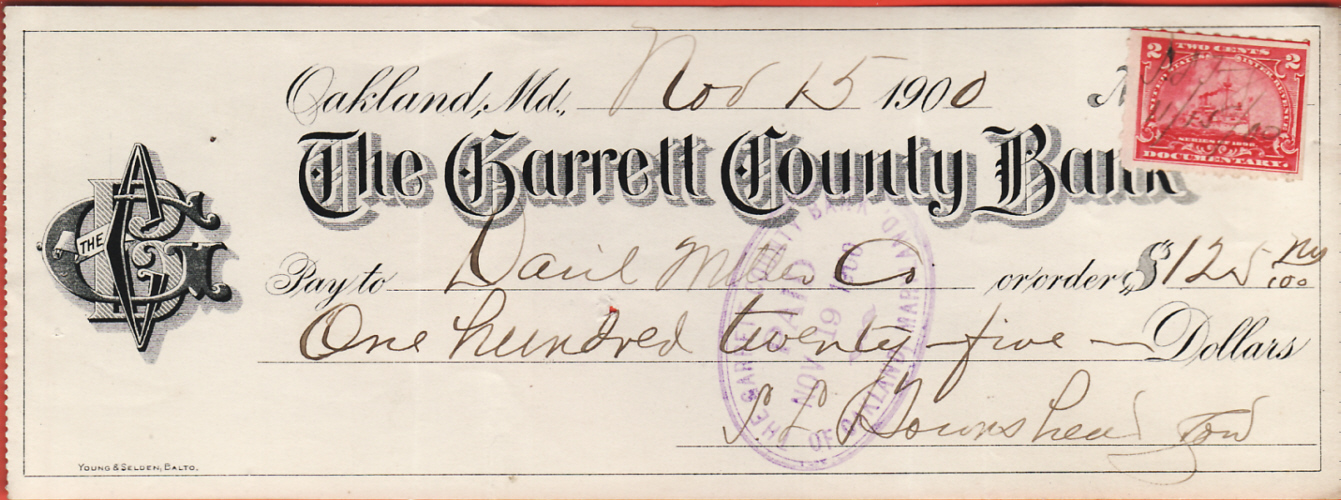 Oakland, Md., Nov 15 1900
TWO CENTS
2 2
SERIES OF 1898
DOCUMENTARY.
The Garrett County Bank
THE
Pay to Danil Miller Co or order $125 no/100
One hundred twenty-five — Dollars
THE GARRETT COUNTY BANK OF OAKLAND, MARYLAND
PAID
NOV 19 1900
YOUNG & SELDEN, BALTO.